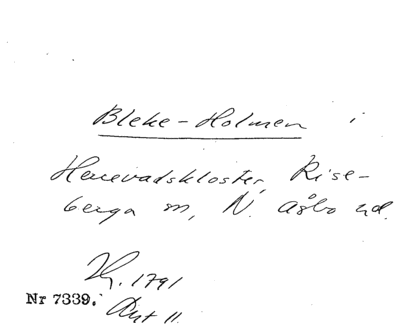 Bleke-Holmen i
Herrevadskloster, Rise-
berga sn, N. Åsbo hd.
1791
Nr 7339. Akt 11.